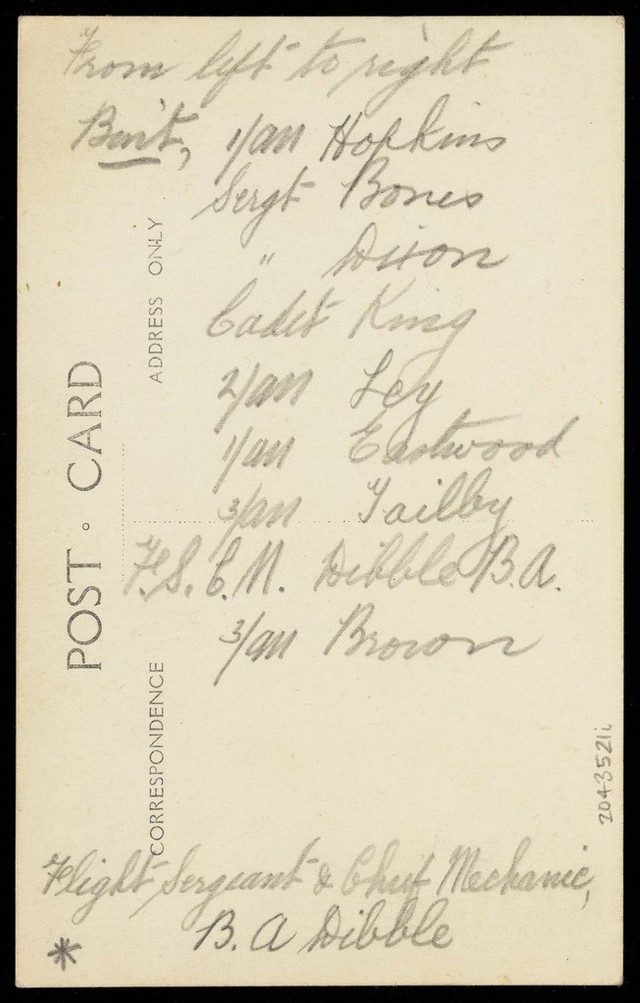 From left to right
Burt, 1/am Hopkins
Sergt Bones
" Dixon
Cadet King
2/am Ley
1/am Eastwood
3/am Tailby
F.S.C.M. Dibble B.A.
3/am Brown
Flight Sergeant & Chief Mechanic,
B. A Dibble
*
POST CARD
ADDRESS ONLY
CORRESPONDENCE
2043521i